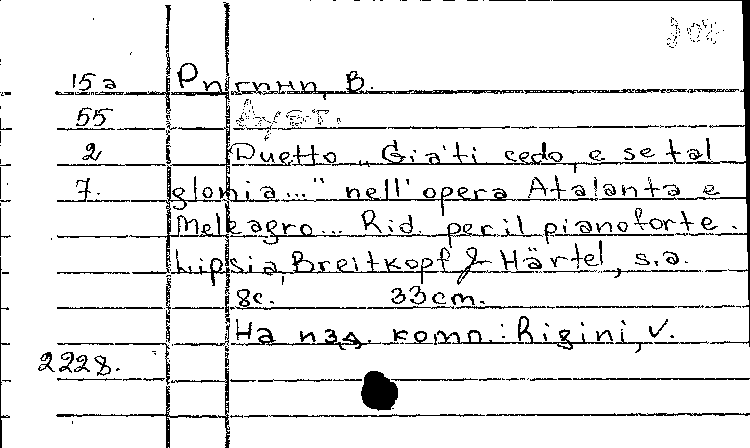 202
15а Ригини, В.
55 Дуэт.
2 Duetto „Gia'ti cedo, e se tal
7. gloria..." nell'opera Atalanta e
Meleagro... Rid. per il pianoforte.
Lipsia, Breitkopf & Härtel, s.a.
8с. 33cm.
На изд. комп.: Rigini, V.
2228.